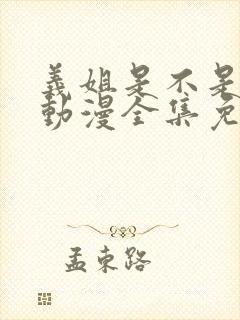 義姐是不是
動漫全集免
孟東路